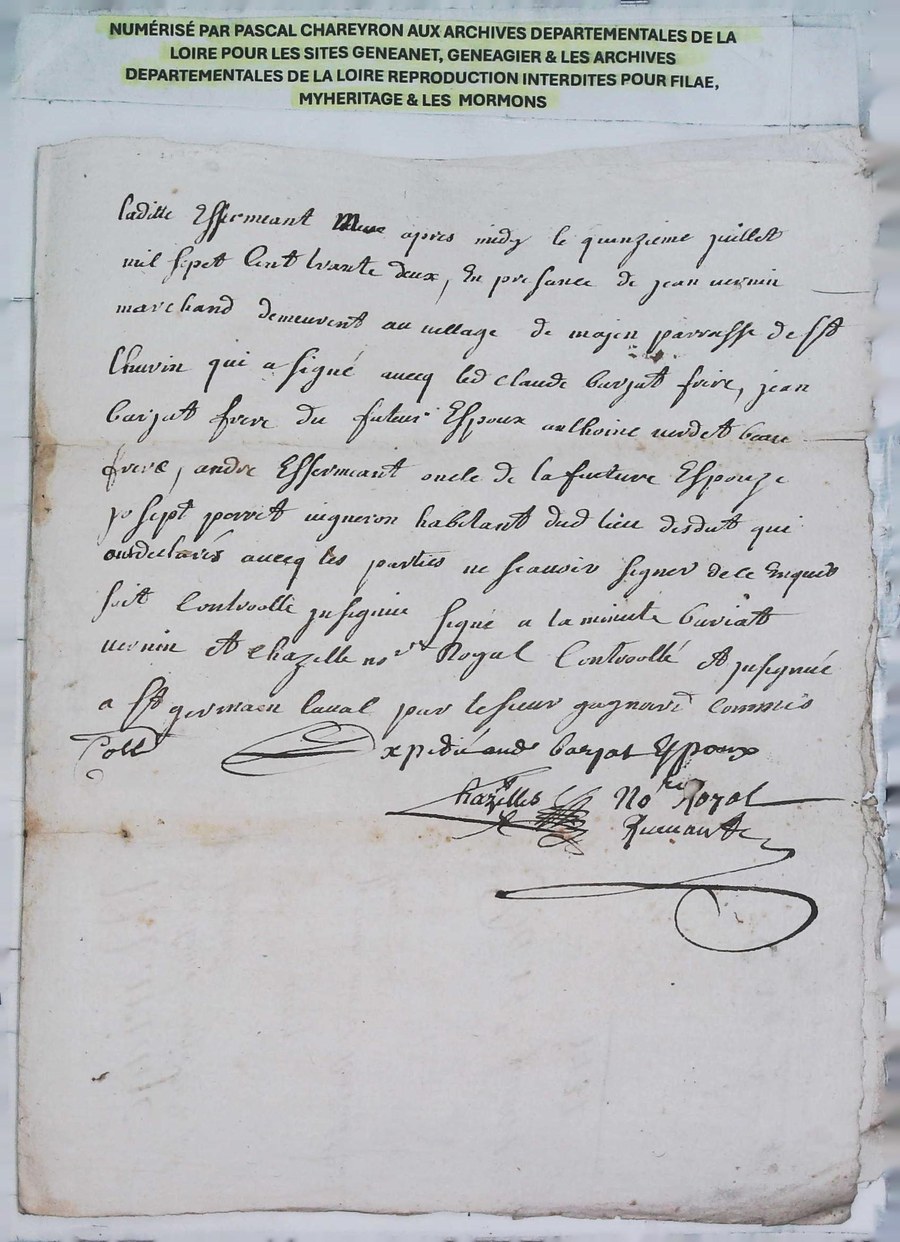 NUMÉRISÉ PAR PASCAL CHAREYRON AUX ARCHIVES DEPARTEMENTALES DE LA
LOIRE POUR LES SITES GENEANET, GENEAGIER & LES ARCHIVES
DEPARTEMENTALES DE LA LOIRE REPRODUCTION INTERDITES POUR FILAE,
MYHERITAGE & LES MORMONS
laditte Essermeant apres midy le quinzieme juillet
mil sept Cent trante deux, En presance de jean vernin
marchand demeurent au village de majen parroisse de St
Thurin qui a signé avecq led claude barjat frere, jean
barjat frere du futeur Espoux anthoine verdet beau
frere, andre Essermeant oncle de la futture Espouze
josept perret vigneron habitant dud lieu desdut qui
ont declarés avecq les parties ne scavoir signer de ce Enquis
soit Controollé jnsignué signé a la minutte barjat
vernin et Chazelle nore Royal Controollé et jnsignué
a St germain laval par le sieur gagnaird commis
Coll Expedié aud barjat Espoux
Chazelles Nore Royal